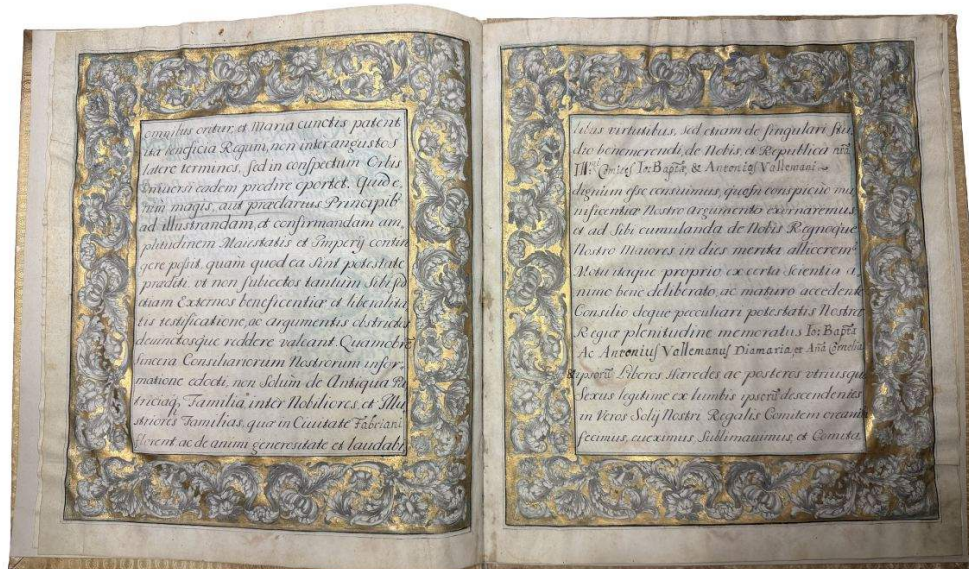 omnibus oritur, et Maria cunctis patent
ita beneficia Regum, non inter angustos
latere terminos, sed in conspectum Orbis
Vniuersi eadem prodire oportet. Quid e,
nim magis, aut præclarius Principib9
ad illustrandam, et confirmandam am,
plitudinem Maiestatis et Imperÿ contin
gere possit, quam quod ea sint potestate
præditi, vt non subiectos tantum Sibi, sed
etiam Externos beneficentiæ et liberalita
tis testificatione, ac argumentis obstrictos
deuinctosque reddere valeant. Quamobrē
Sincera Consiliariorum Nostrorum infor,
matione edocti, non Solum de Antiqua Pa
triciaq, Familia inter Nobiliores, et Illu
striores Familias, quæ in Ciuitate Fabriani
florent, ac de animi generositate et laudabi,
libus virtutibus, sed etiam de singulari stu
dio benemerendi, de Nobis, et Republica nrā
Comites Io: Baptā, & Antoniū Vallemani
dignum esse censuimus, quos conspicuo mu
nificentiæ Nostræ argumento exornaremus
et ad Sibi cumulanda de Nobis Regnoque
Nostro Maiores in dies merita alliceremꝰ
Motu itaque proprio ex certa Scientia a,
nimo bene deliberato, ac maturo accedente
Consilio deque peculiari potestatis Nostræ
Regiæ plenitudine memoratus Io: Baptā
Ac Antoniuſ Vallemanuſ Diamaria, et Anā Cornelia
Liberos Hæredes ac posteros vtriusqu
Sexus legitime ex lumbis ipsorū descendentes
in Veros Solÿ Nostri Regalis Comitem creauim
fecimus, eueximus Sublimauimus, et Comita,